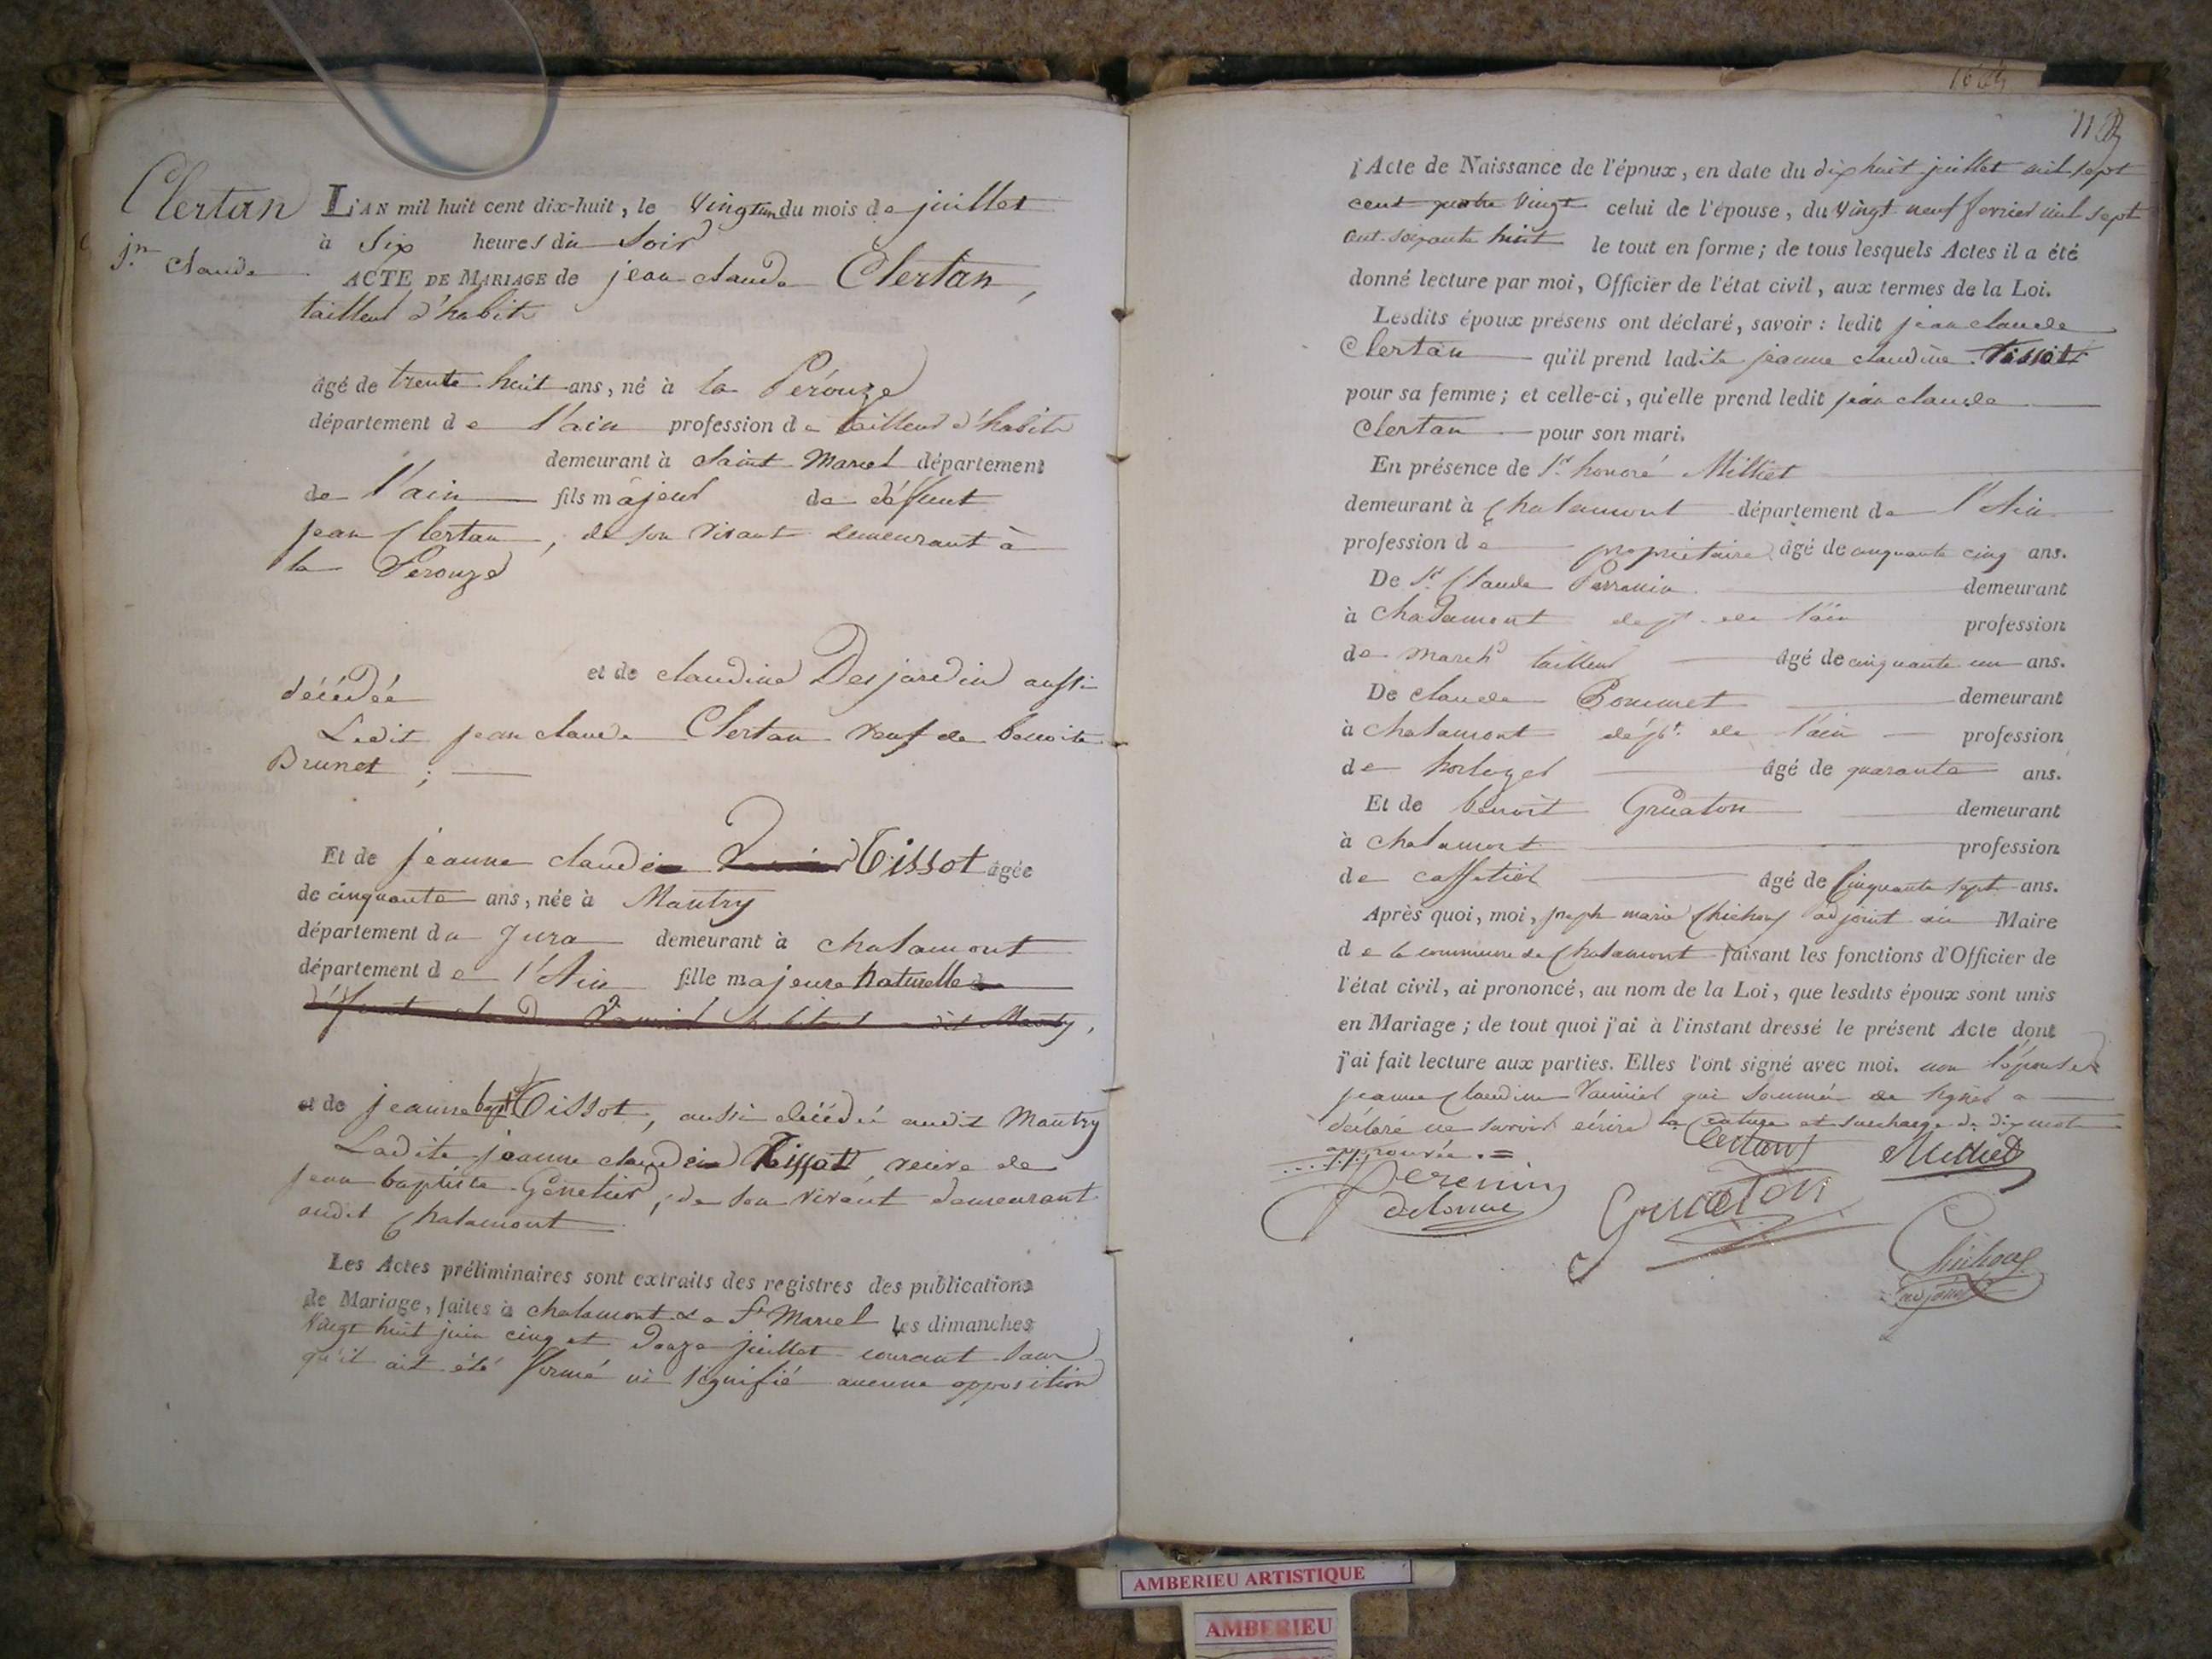 Clertan
jn Claude
L'AN mil huit cent dix-huit, le vingt un du mois de juillet
à six heures du soir
ACTE DE MARIAGE de jean claude Clertan,
tailleur d'habits
âgé de trente huit ans, né à la Pérouze
département de l'ain profession de tailleur d'habits
demeurant à Saint Marcel département
de l'ain fils majeur de défunt
jean Clertan, de son vivant demeurant à
la Perouze
et de claudine Desjardin aussi
décédée
Ledit jean claude Clertan veuf de benoite
Brunet ;
Et de jeanne claudine Tissot âgée
de cinquante ans, née à Mantry
département du Jura demeurant à chalamont
département de l'Ain fille majeure naturelle de
défunt
et de jeanne bapt Tissot, aussi décédée audit Mantry
Ladite jeanne claudine Tissot, veuve de
jean baptiste Genetier, de son vivant demeurant
audit Chalamont
Les Actes préliminaires sont extraits des registres des publications
de Mariage, faites à chalamont & a St Marcel les dimanches
vingt huit juin cinq et douze juillet courant sans
qu'il ait été formé ni signifié aucune opposition
l'Acte de Naissance de l'époux, en date du dix huit juillet mil sept
cent quatre vingt celui de l'épouse, du vingt neuf fevrier mil sept
cent soixante huit le tout en forme; de tous lesquels Actes il a été
donné lecture par moi, Officier de l'état civil, aux termes de la Loi.
Lesdits époux présens ont déclaré, savoir : ledit jean claude
Clertan qu'il prend ladite jeanne claudine Tissott
pour sa femme; et celle-ci, qu'elle prend ledit jean claude
Clertan pour son mari.
En présence de Sr honoré Milliet
demeurant à Chalamont département de l'Ain
profession de propriétaire âgé de cinquante cinq ans.
De Sr Claude Perronin demeurant
à Chalamont dept de l'ain profession
de march tailleur âgé de cinquante un ans.
De claude Pommet demeurant
à chalamont dépt. de l'ain profession
de horloger âgé de quarante ans.
Et de benoit Gruaton demeurant
à chalamont profession
de caffetier âgé de cinquante sept ans.
Après quoi, moi, joseph marie Chichoux adjoint au Maire
de la commune de Chalamont faisant les fonctions d'Officier de
l'état civil, ai prononcé, au nom de la Loi, que lesdits époux sont unis
en Mariage; de tout quoi j'ai à l'instant dressé le présent Acte dont
j'ai fait lecture aux parties. Elles l'ont signé avec moi. non l'épouse
jeanne Claudine qui sommée de signer a
déclaré ne savoir écrire la rature et surcharge de dix mots
approuvée. =
Clertan Milliet
Perenin
delorme
Gruaton
adjoint
AMBERIEU ARTISTIQUE
AMBERIEU